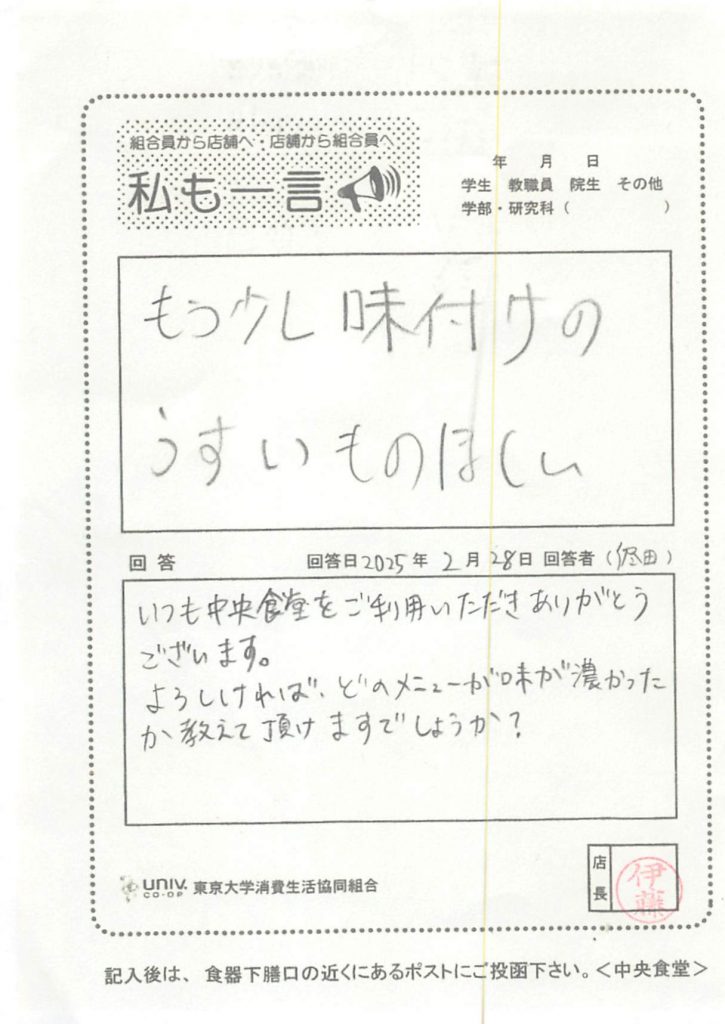 組合員から店舗へ・店舗から組合員へ
私も一言
年 月 日
学生 教職員 院生 その他
学部・研究科（ ）
もう少し味付けの
うすいものほしい
回答 回答日2025年 2月 28日 回答者（経田）
いつも中央食堂をご利用いただきありがとう
ございます。
よろしければ、どのメニューが味が濃かった
か教えて頂けますでしょうか？
UNIV. CO-OP 東京大学消費生活協同組合
店長 伊藤
記入後は、食器下膳口の近くにあるポストにご投函下さい。＜中央食堂＞